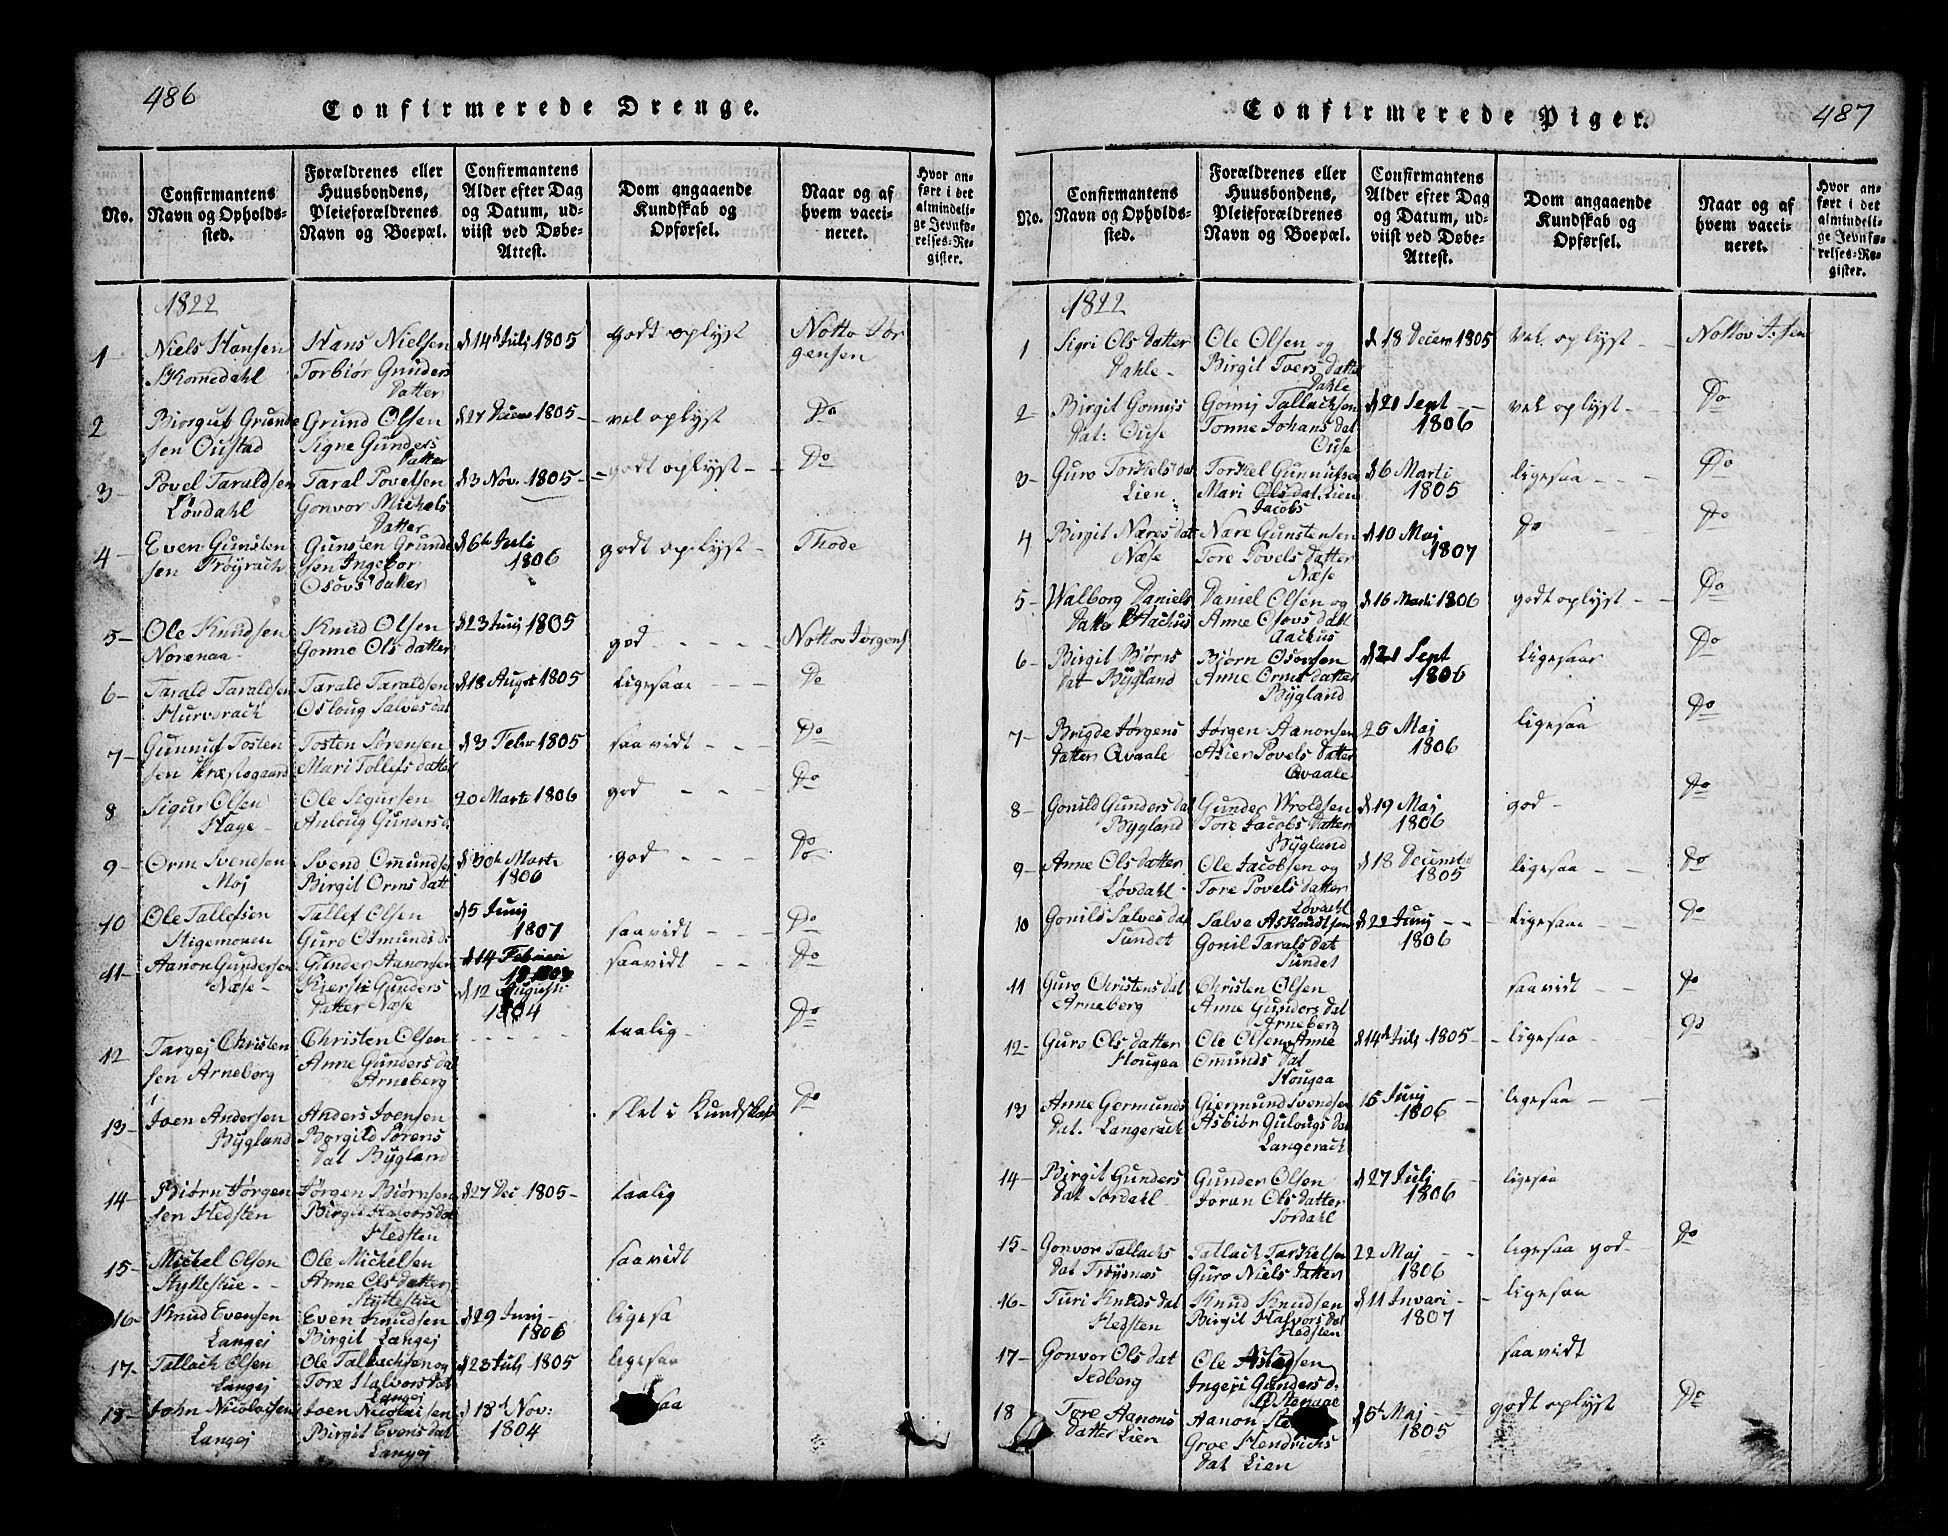 486
Confirmerede Drenge.
No.
Confirmantens
Navn og Opholds-
sted.
Forældrenes eller
Huusbondens,
Pleieforældrenes
Navn og Boepæl.
Confirmantens
Alder efter Dag
og Datum, ud-
viist ved Døbe-
Attest.
Dom angaaende
Kundskab og
Opførsel.
Naar og af
hvem vacci-
neret.
Hvor an-
ført i det
almindeli-
ge Jevnfø-
relses-Re-
gister.
1822
1
Niels Hansen
Skomedahl
Hans Nielsen
Torbiør Gunders
Datter
d 14de Julj 1805
godt oplyst
Notto Jør
gensen
2
Biorguf Grunde
sen Oustad
Grund Olsen
Signe Gunders
Datter
d 27 Decem 1805 -
vel oplyst
Do
3
Povel Taraldsen
Løvdahl
Taral Povelsen
Gonvor Michels
Datter
d 3 Nov. 1805 -
godt oplyst -
Do
4
Even Gunsten
sen Frøyrach
Gunsten Grunde
sen Ingebor
Osovs datter
d 6te Juli
1806
godt oplyst -
Thode
5 -
Ole Knudsen
Norenaa
Knud Olsen
Gonne Ols datter
d 23 Junj 1805
god
Nottov Jørgens
6 -
Tarald Taraldsen
Hurverach
Tarald Taraldsen
Osloug Salves dat
d 18 Augst 1805
ligesaae
Do
7 -
Gunnuf Tosten
sen Præstegaard
Tosten Sørensen
Mari Tollefs datter
d 3 Febr 1805
saavidt
Do
8
Sigur Olsen
Hage -
Ole Sigursen
Anloug Gunders d
20 Marte 1806
god
Do
9 -
Orm Svendsen
Moj
Svend Omundsen
Birgit Orms datt
d 30te Marte
1806
god
Do
10
Ole Tallefsen
Stigemoen
Tallef Olsen
Guro Osmunds d
d 5 Junj
1807
saavidt
Do
11 -
Aanon Gundersen
Næse -
Gunder Aanonsen
Kiersti Gunders
Datter Næse
d 14 Februari
d 12 Augusti
1804
saavidt
Do
12
Targej Christen
sen Arneberg
Christen Olsen
Anne Gunders da
Arneberg
taalig
Do
13 -
Joen Andersen
Bÿgland
Anders Joensen
Borgild Sørens
dat Bÿgland
slet i Kundskab
Do
14 -
Biørn Jørgen
sen Hedsten
Jørgen Biørnsen
Birgit Halvors dat
Hedsten
d 27 Dec 1805 -
taalig
15 -
Michel Olsen
Styttestue - -
Ole Michelsen
Anne Ols datter
Styttestue
saavidt
16 -
Knud Evensen
Langej
Even Knudsen
Birgit Langej
d 29 Junj -
1806
ligesa
17 -
Tallach Olsen
Langej
Ole Tallachsen og
Tore Halvors dat
Langej
d 23 Julj 1805
ligesaa
18 -
John Nicolaisen
Langej
Joen Nicolaisen
Birgit Evens dat
Langej
d 18de Nov:
1804
saa
487
Confirmerede Piger.
No.
Confirmantens
Navn og Opholds-
sted.
Forældrenes eller
Huusbondens,
Pleieforældrenes
Navn og Boepæl.
Confirmantens
Alder efter Dag
og Datum, ud-
viist ved Døbe-
Attest.
Dom angaaende
Kundskab og
Opførsel.
Naar og af
hvem vacci-
neret.
Hvor an-
ført i det
almindeli-
ge Jevnfø-
relses-Re-
gister.
1822
1
Sigri Ols Datter
Dahle -
Ole Olsen og
Birgit Tvers datter
Dahle
d 18 Decem 1805
vel oplyst -
Nottov J:sen
2 -
Birgit Gomøjs
Dat: Ouse
Gomøj Tallachsen
Tonne Johans dat
Ouse
d 21 Sept
1806
vel oplyst -
Do
3 -
Guro Torkels dat
Lien
Torkel Gunnufsen
Mari Ols dat. Lien
Jacobs
d 6 Marti
1805
ligesaa
Do
4
Birgit Næres dat
Næse
Nare Gunstensen
Tore Povels datter
Næse
d 10 Maj
1807
Do
Do
5 -
Walborg Daniels
Datter Aachus
Daniel Olsen og
Anne Osovs datt
Aachus
d 16 Marti 1806
godt oplyst -
Do
6 -
Birgit Biørns
dat Bÿgland
Biørn Osovsen
Anne Orms datter
Bÿgland
d 21 Sept
1806
ligesaa
Do
7 -
Brigde Jørgens
datter Qvaale
Jørgen Aanonsen
Asier Povels datter
Qvaale
25 Maj
1806
ligesaa
Do
8 -
Gonild Gunders dat
Bÿgland
Gunder Wroldsen
Tore Jacobs datter
Bÿgland
d 19 Maj
1806
god -
Do
9 -
Anne Ols datter
Løvdahl
Ole Jacobsen og
Tore Povels datter
Løvdahl
d 18 Decembr
1805
ligesaa
Do
10
Gonild Salves dat
Sundet
Salve Asknudsen
Gonil Tarals dat
Sundet
d 22 Junj
1806
ligesaa
Do
11
Guro Christens dat
Arneberg
Christen Olsen
Anne Gunders dat
Arneberg
saavidt
Do
12 -
Guro Ols datter
Hougaa
Ole Olsen Anne
Omunds dat
Hougaa
d 14de Julj 1805 -
ligesaa
Do
13
Anne Germunds
dat. Langerach
Giermund Svendsen
Asbiør Gulougs dat
Langerach
15 Junj
1806
ligesaa
14 -
Birgit Gunders
dat Sordahl
Gunder Olsen
Joran Ols datter
Sordahl
d 27 Juli
1806
ligesaa
15 -
Gonvor Tallachs
dat Frøysnæs
Tallach Tarkelsen
Guro Niels datter
22 Maj
1806
ligesaa god
Do
16 -
Turi Knuds dat
Hedsten
Knud Knudsen
Birgit Halvors dat
Hedsten
d 11 Jnvari
1807
ligesaa
17 -
Gonvor Ols dat
Sedberg
Ole Aslagsen
Ingeri Gunders d:
saavidt
18
Tore Aanons
Datter Lien
Aanon
Groe Hendrichs
dat Lien
d 5te Maj
1805
godt oplyst
Do